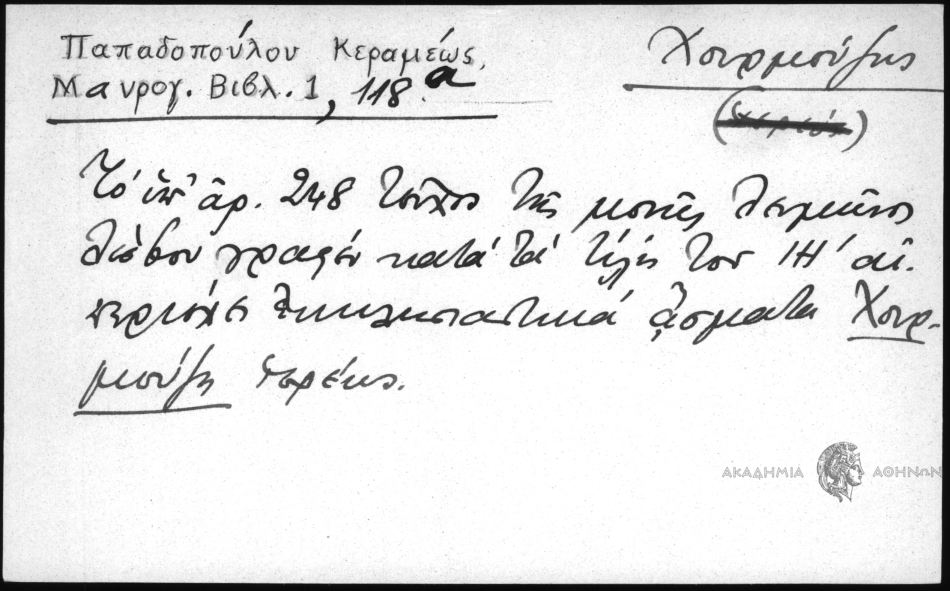 Παπαδοπούλου Κεραμέως,
Μαυρογ. Βιβλ. 1, 118.α
Χουρμούζης
Τὸ ὑπ' ἀρ. 248 τεῦχος τῆς μονῆς Λειμῶνος
Λέσβου γραφὲν κατὰ τὰ τέλη τοῦ ΙΗ' αἰ.
περιέχει ἐκκλησιαστικά ᾄσματα Χουρ-
μούζη ἱερέως.
ΑΚΑΔΗΜΙΑ ΑΘΗΝΩΝ